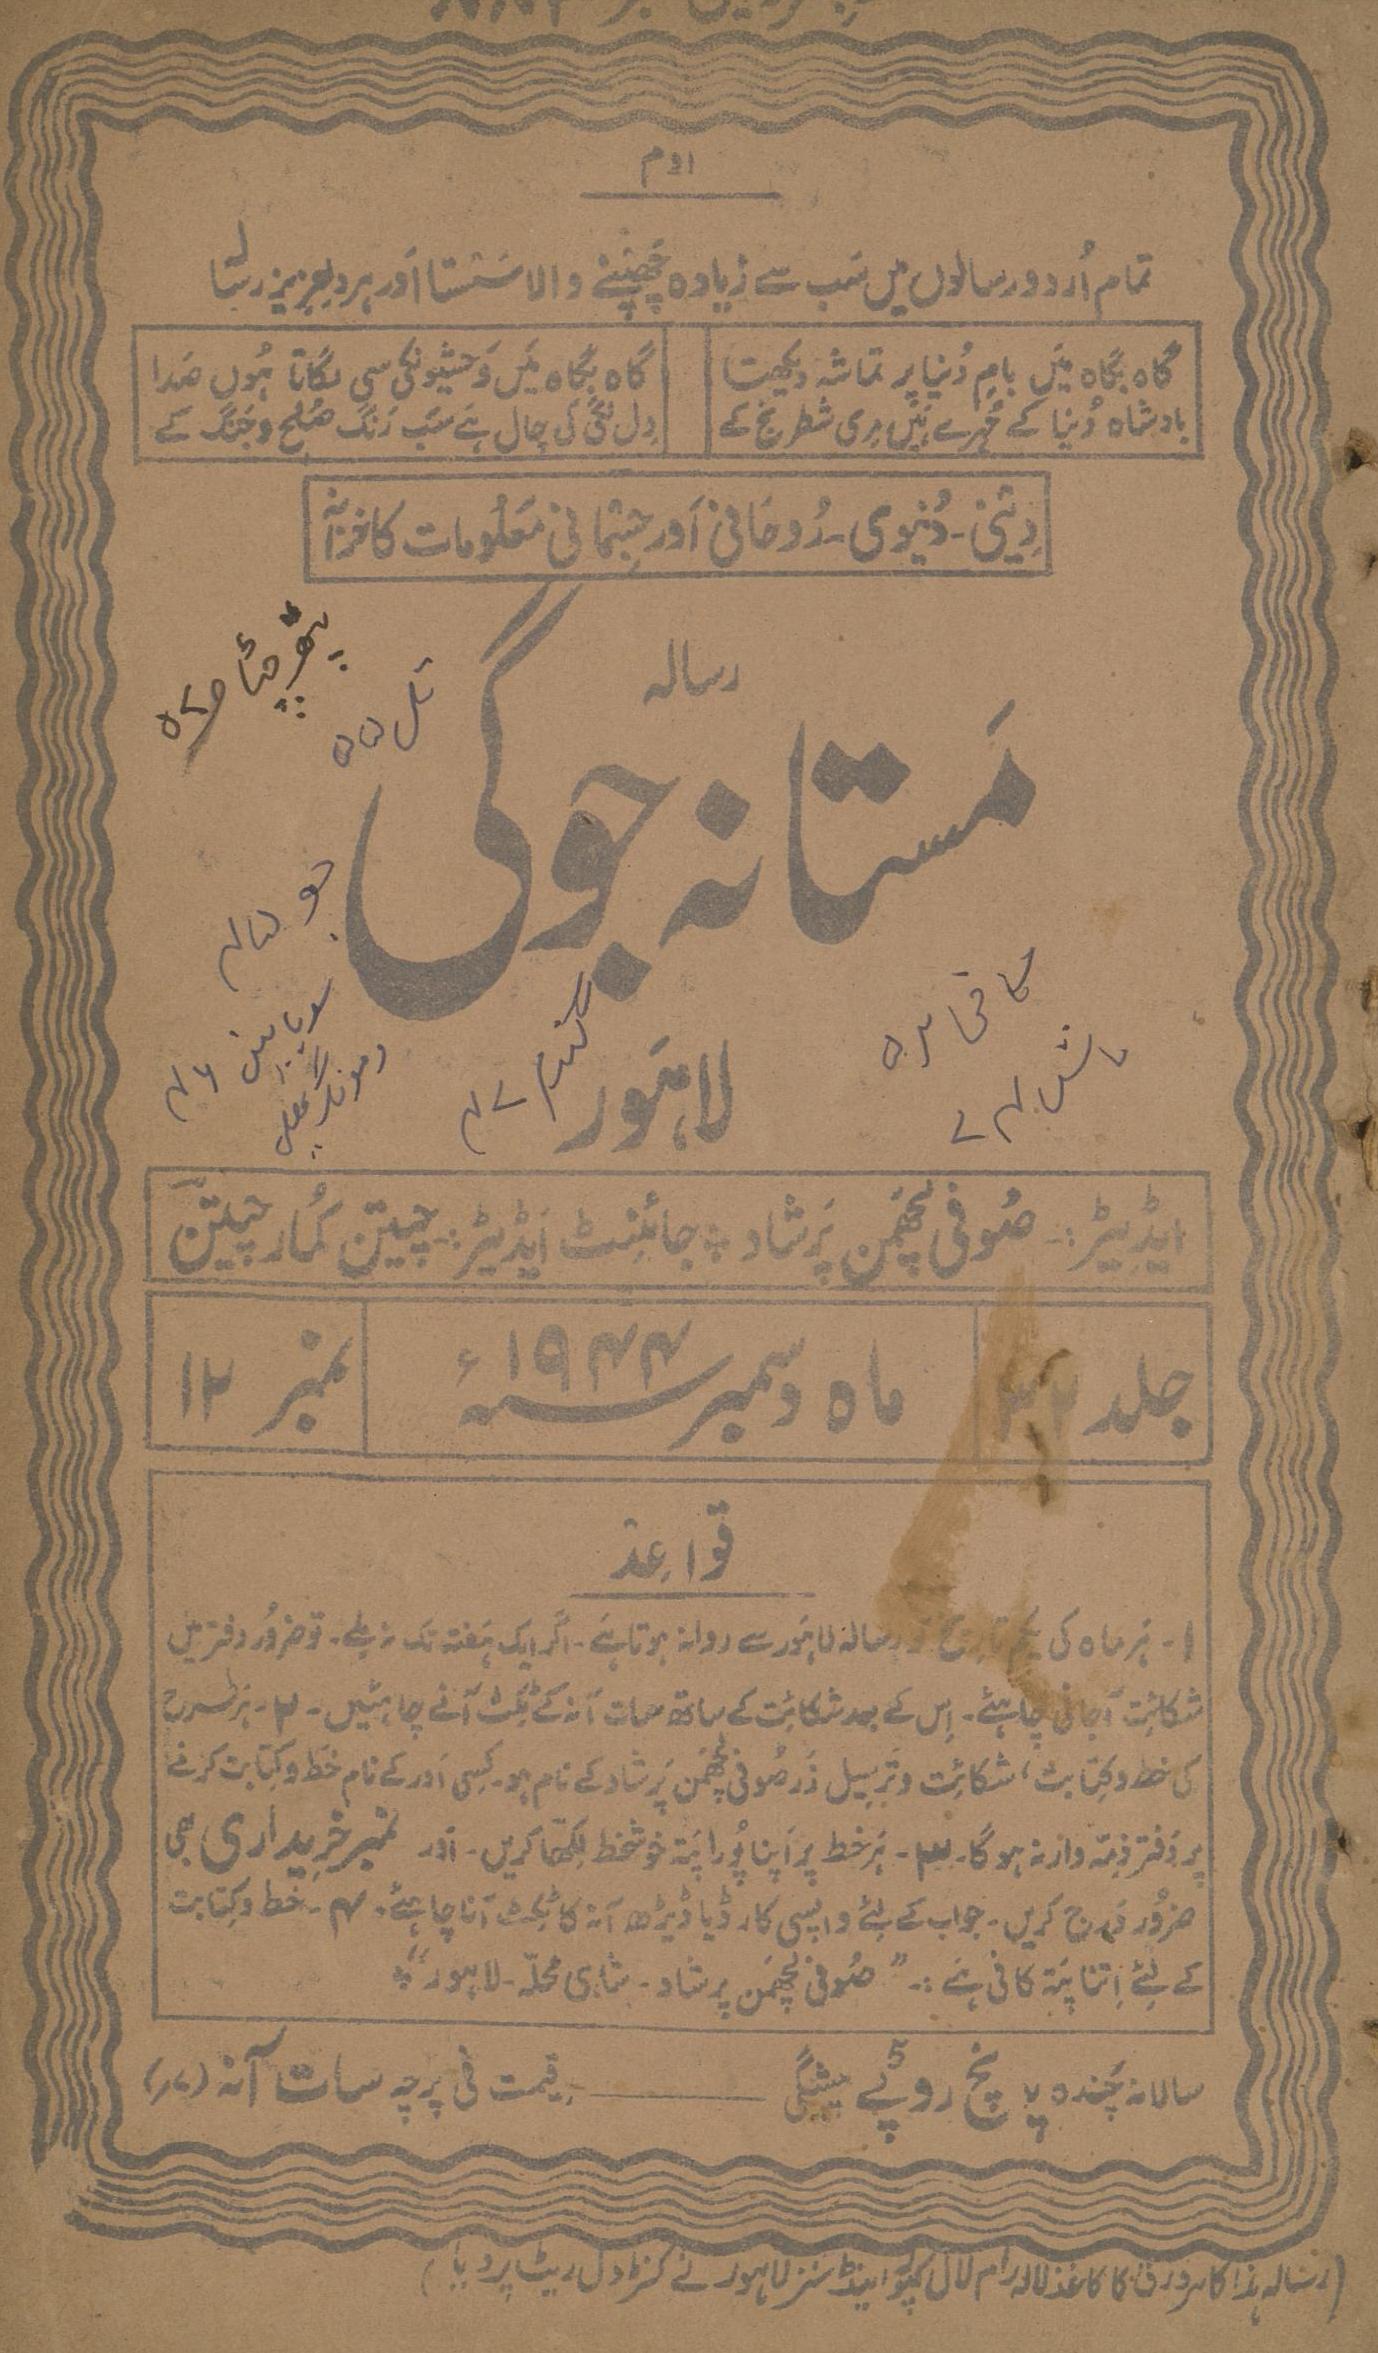 اوم
تمام اُردو رسالوں میں سَب سے زیادہ چھَپنے والا سَستا اَور ہردلعزیز رسالہ
گاہ بگاہ مَیں بامِ دُنیا پر تماشہ دیکھتا
گاہ بگاہ مَیں وَحشیونکی سی لگاتا ہُوں صَدا
بادشاہ دُنیا کے مُہرے ہَیں مِری شطرنج کے
دِل لگی کی چال ہَے سَب رَنگ صُلح و جَنگ کے
دِینی - دُنیوی - رُوحانی اَور جِسمانی مَعلُومات کا خزانہ
رسالہ
مَستانہ جوگی
لاہَور
پتھر چٹا ص۲۵
تل ۵۵
جو ۴۵
سویابین ۴۶
و مونگ پھلی
گندم ۴۷
کافی ۵۲
ماش ۷۴
ایڈیٹر :۔ صُوفی لچھمَن پَرشاد ؞ جائِنٹ ایڈیٹر :۔ چیتن کُمار چیتنؔ
جلد
ماہ دسمبر سنہ ۱۹۴۴ء
نمبر ۱۲
قواعد
۱۔ ہَر ماہ کی یکم تاریخ کو رسالہ لاہَور سے روانہ ہوتا ہَے۔ اگر ایک ہَفتہ تک نہ مِلے۔ تو ضرُور دفتر میں
شکائِت آجانی چاہئے۔ اِس کے بعد شکائِت کے ساتھ سات آنہ کے ٹِکٹ آنے چاہئیں۔ ۲۔ ہَر طرح
کی خط و کِتابت، شکائِت و ترسِیل زَر صُوفی لچھمَن پَرشاد کے نام ہو۔ کِسی اَور کے نام خَط و کِتابت کرنے
پر دَفتر ذِمّہ وار نہ ہو گا۔ ۳۔ ہَر خط پر اَپنا پُورا پَتہ خوشخط لِکھّا کریں۔ اَور نمبر خریداری بھی
ضرُور دَرج کریں۔ جواب کے لِئے واپسی کارڈ یا ڈیڑھ آنہ کا ٹِکٹ آنا چاہئے۔ ۴۔ خَط و کِتابت
کے لِئے اِتنا پَتہ کافی ہَے :۔ ”صُوفی لچھمَن پرشاد۔ شاہی محلّہ۔ لاہور“ ؞
سالانہ چَندہ پانچ روپَے پیشگی ——— قِیمت فی پرچہ سات آنہ (۷؍)
(رسالہ ہٰذا کا سرورق کا کاغذ لالہ رام لال کپور اینڈ سنز لاہور نے کنٹرول ریٹ پر دیا)